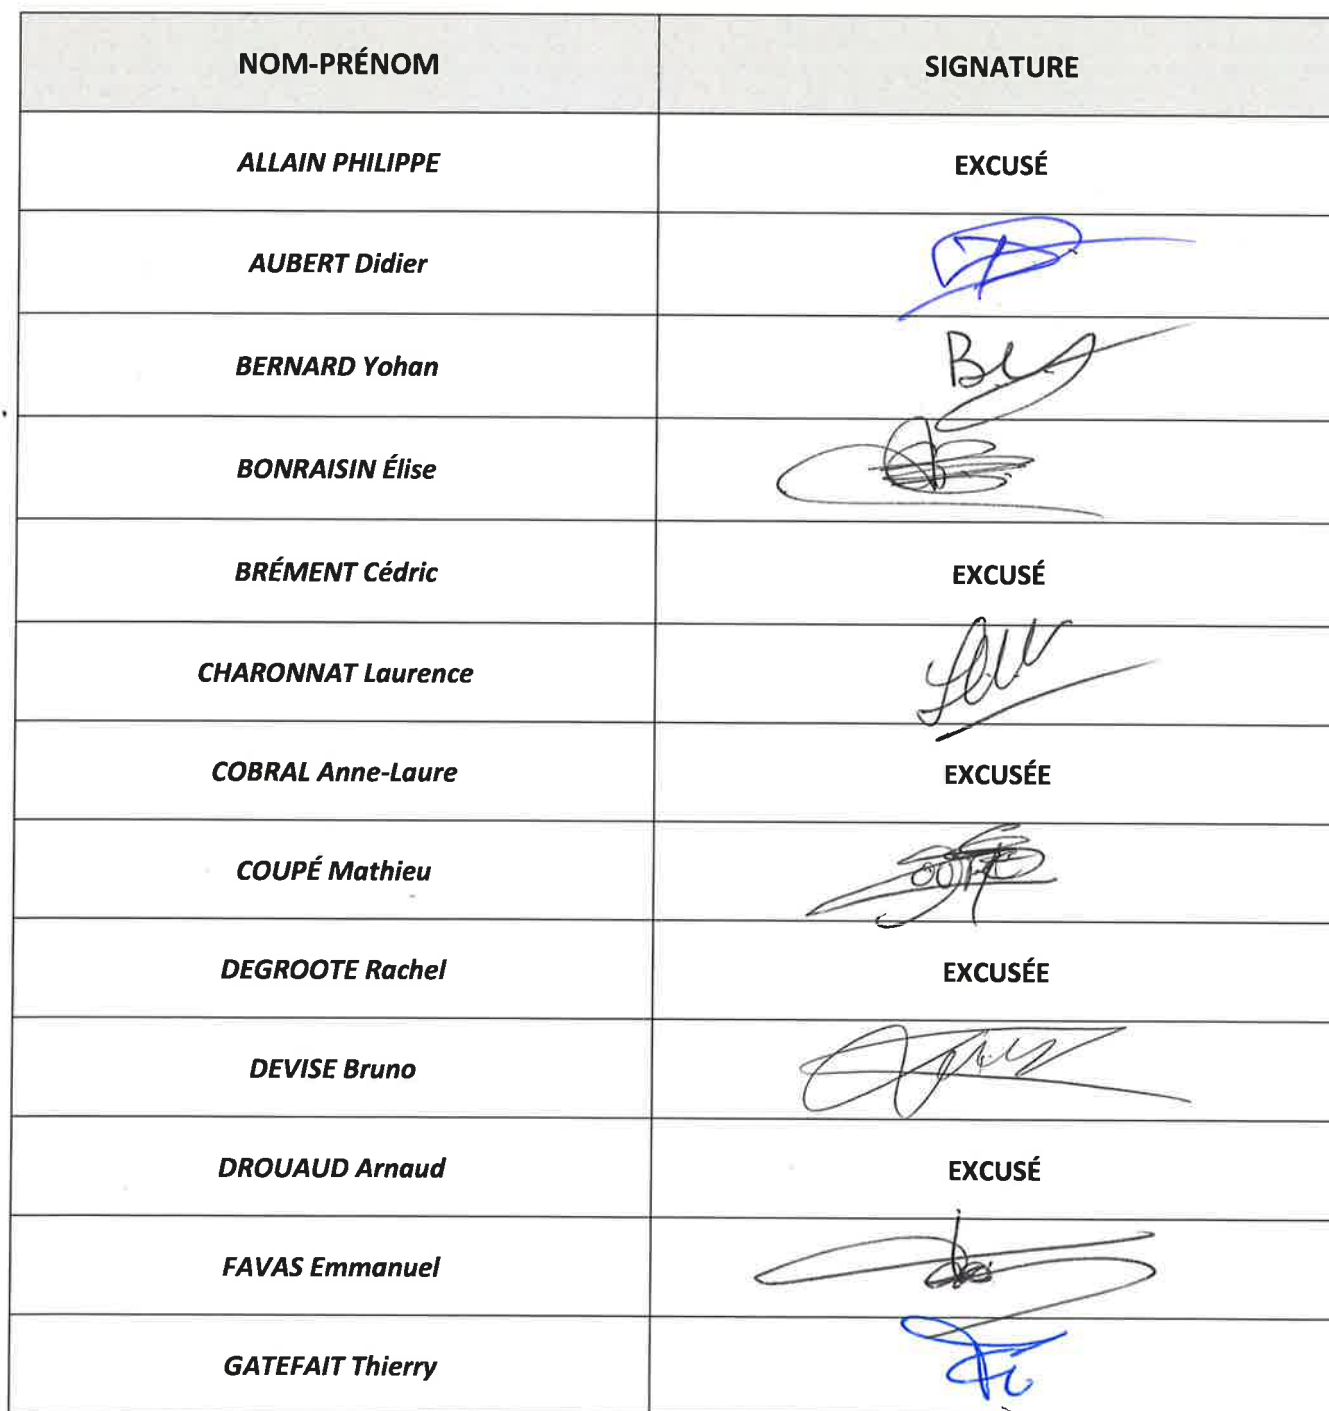 NOM-PRÉNOM SIGNATURE
ALLAIN PHILIPPE EXCUSÉ
AUBERT Didier
BERNARD Yohan
BONRAISIN Élise
BRÉMENT Cédric EXCUSÉ
CHARONNAT Laurence
COBRAL Anne-Laure EXCUSÉE
COUPÉ Mathieu
DEGROOTE Rachel EXCUSÉE
DEVISE Bruno
DROUAUD Arnaud EXCUSÉ
FAVAS Emmanuel
GATEFAIT Thierry